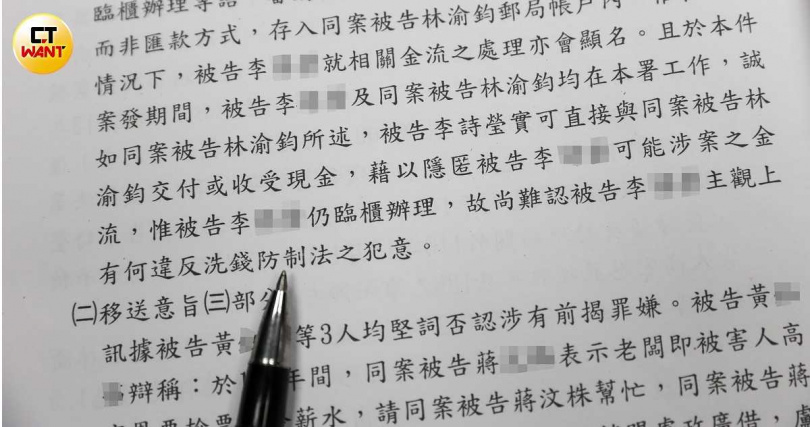 CT
WANT
臨櫃辦理等語，
而非匯款方式，存入同案被告林渝鈞郵局帳戶內，
情況下，被告李 就相關金流之處理亦會顯名。且於本件
案發期間，被告李 及同案被告林渝鈞均在本署工作，誠
如同案被告林渝鈞所述，被告李詩瑩實可直接與同案被告林
渝鈞交付或收受現金，藉以隱匿被告李 可能涉案之金
流，惟被告李 仍臨櫃辦理，故尚難認被告李 主觀上
有何違反洗錢防制法之犯意。
㈡移送意旨㈢部分
訊據被告黃 等3人均堅詞否認涉有前揭罪嫌。被告黃
辯稱：於 年間，同案被告蔣 表示老闆即被害人高
薪水，請同案被告蔣汶株幫忙，同案被告蔣